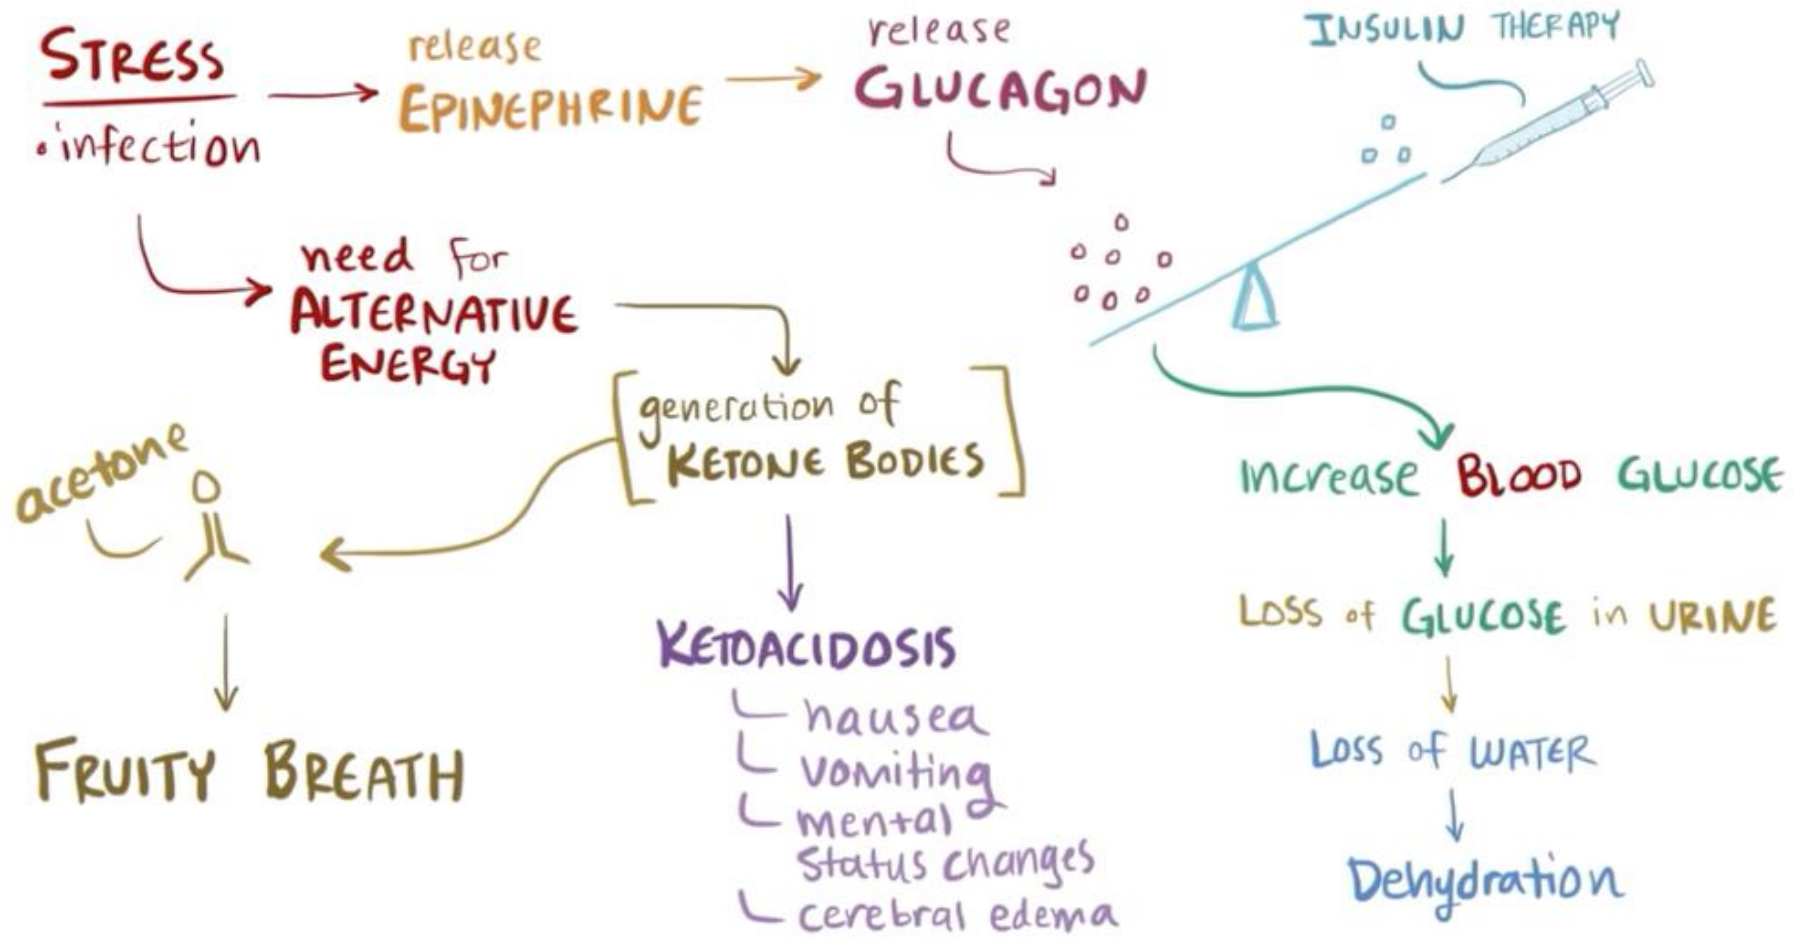 STRESS
• infection
release
EPINEPHRINE
release
GLUCAGON
INSULIN THERAPY
need for
ALTERNATIVE
ENERGY
generation of
KETONE BODIES
acetone
O
FRUITY BREATH
KETOACIDOSIS
nausea
vomiting
mental
status changes
cerebral edema
Increase BLOOD GLUCOSE
LOSS of GLUCOSE in URINE
Loss of WATER
Dehydration